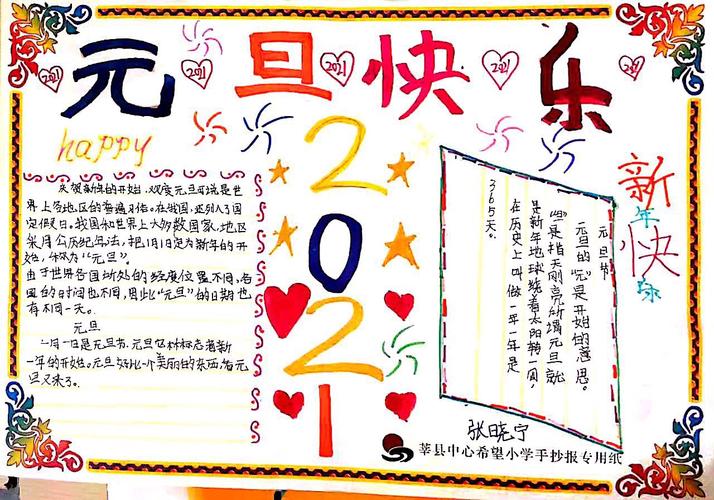 元旦快乐
2021
2021
2021
2021
2021
happy
2021
庆祝新年的开始,欢度元旦可说是世
界上各地区的普遍习俗。在我国,还列入了国
定假日。我国和世界上大多数国家、地区
采用公历纪年法,把1月1日定为新年的开
始,称为“元旦”。
由于世界各国所处的经度位置不同,各
国的时间也不同,因此“元旦”的日期也
有不同一天。
元旦
一月一日是元旦节,元旦它标志着新
一年的开始。元旦好比一个美丽的东西,看元
旦又来了。
元旦节
元旦的“元”是开始的意思。
“旦”是指天刚亮所谓元旦就
是新年地球绕着太阳转一周,
在历史上叫做一年一年是
365天。
新
年
快
张晓宁
莘县中心希望小学手抄报专用纸